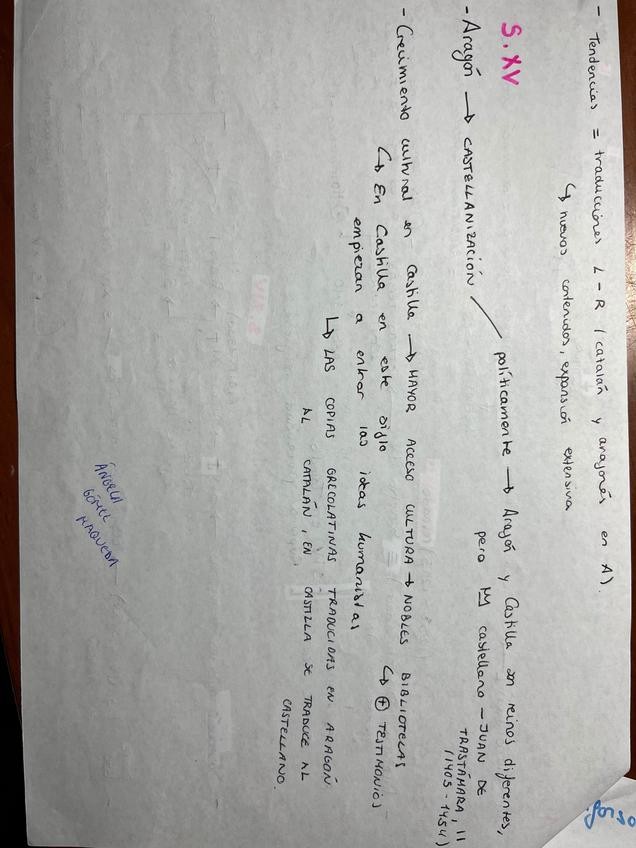 - Tendencias = traducciones L-R (catalán y aragonés en A).
↳ nuevos contenidos, expansión extensiva
S. XV
- Aragón → CASTELLANIZACIÓN / políticamente → Aragón y Castilla son reinos diferentes,
pero castellano - JUAN DE
TRASTÁMARA, II
(1405 - 1454)
- Crecimiento cultural en Castilla → MAYOR ACCESO CULTURA → NOBLES BIBLIOTECAS
↳ ⊕ TESTIMONIOS
↳ En Castilla en este siglo
empiezan a entrar las ideas humanistas
↳ LAS COPIAS GRECOLATINAS TRADUCIDAS EN ARAGÓN
AL CATALÁN, EN CASTILLA SE TRADUCE AL
CASTELLANO.
ÁNGELA
GÓMEZ
MAQUEDA